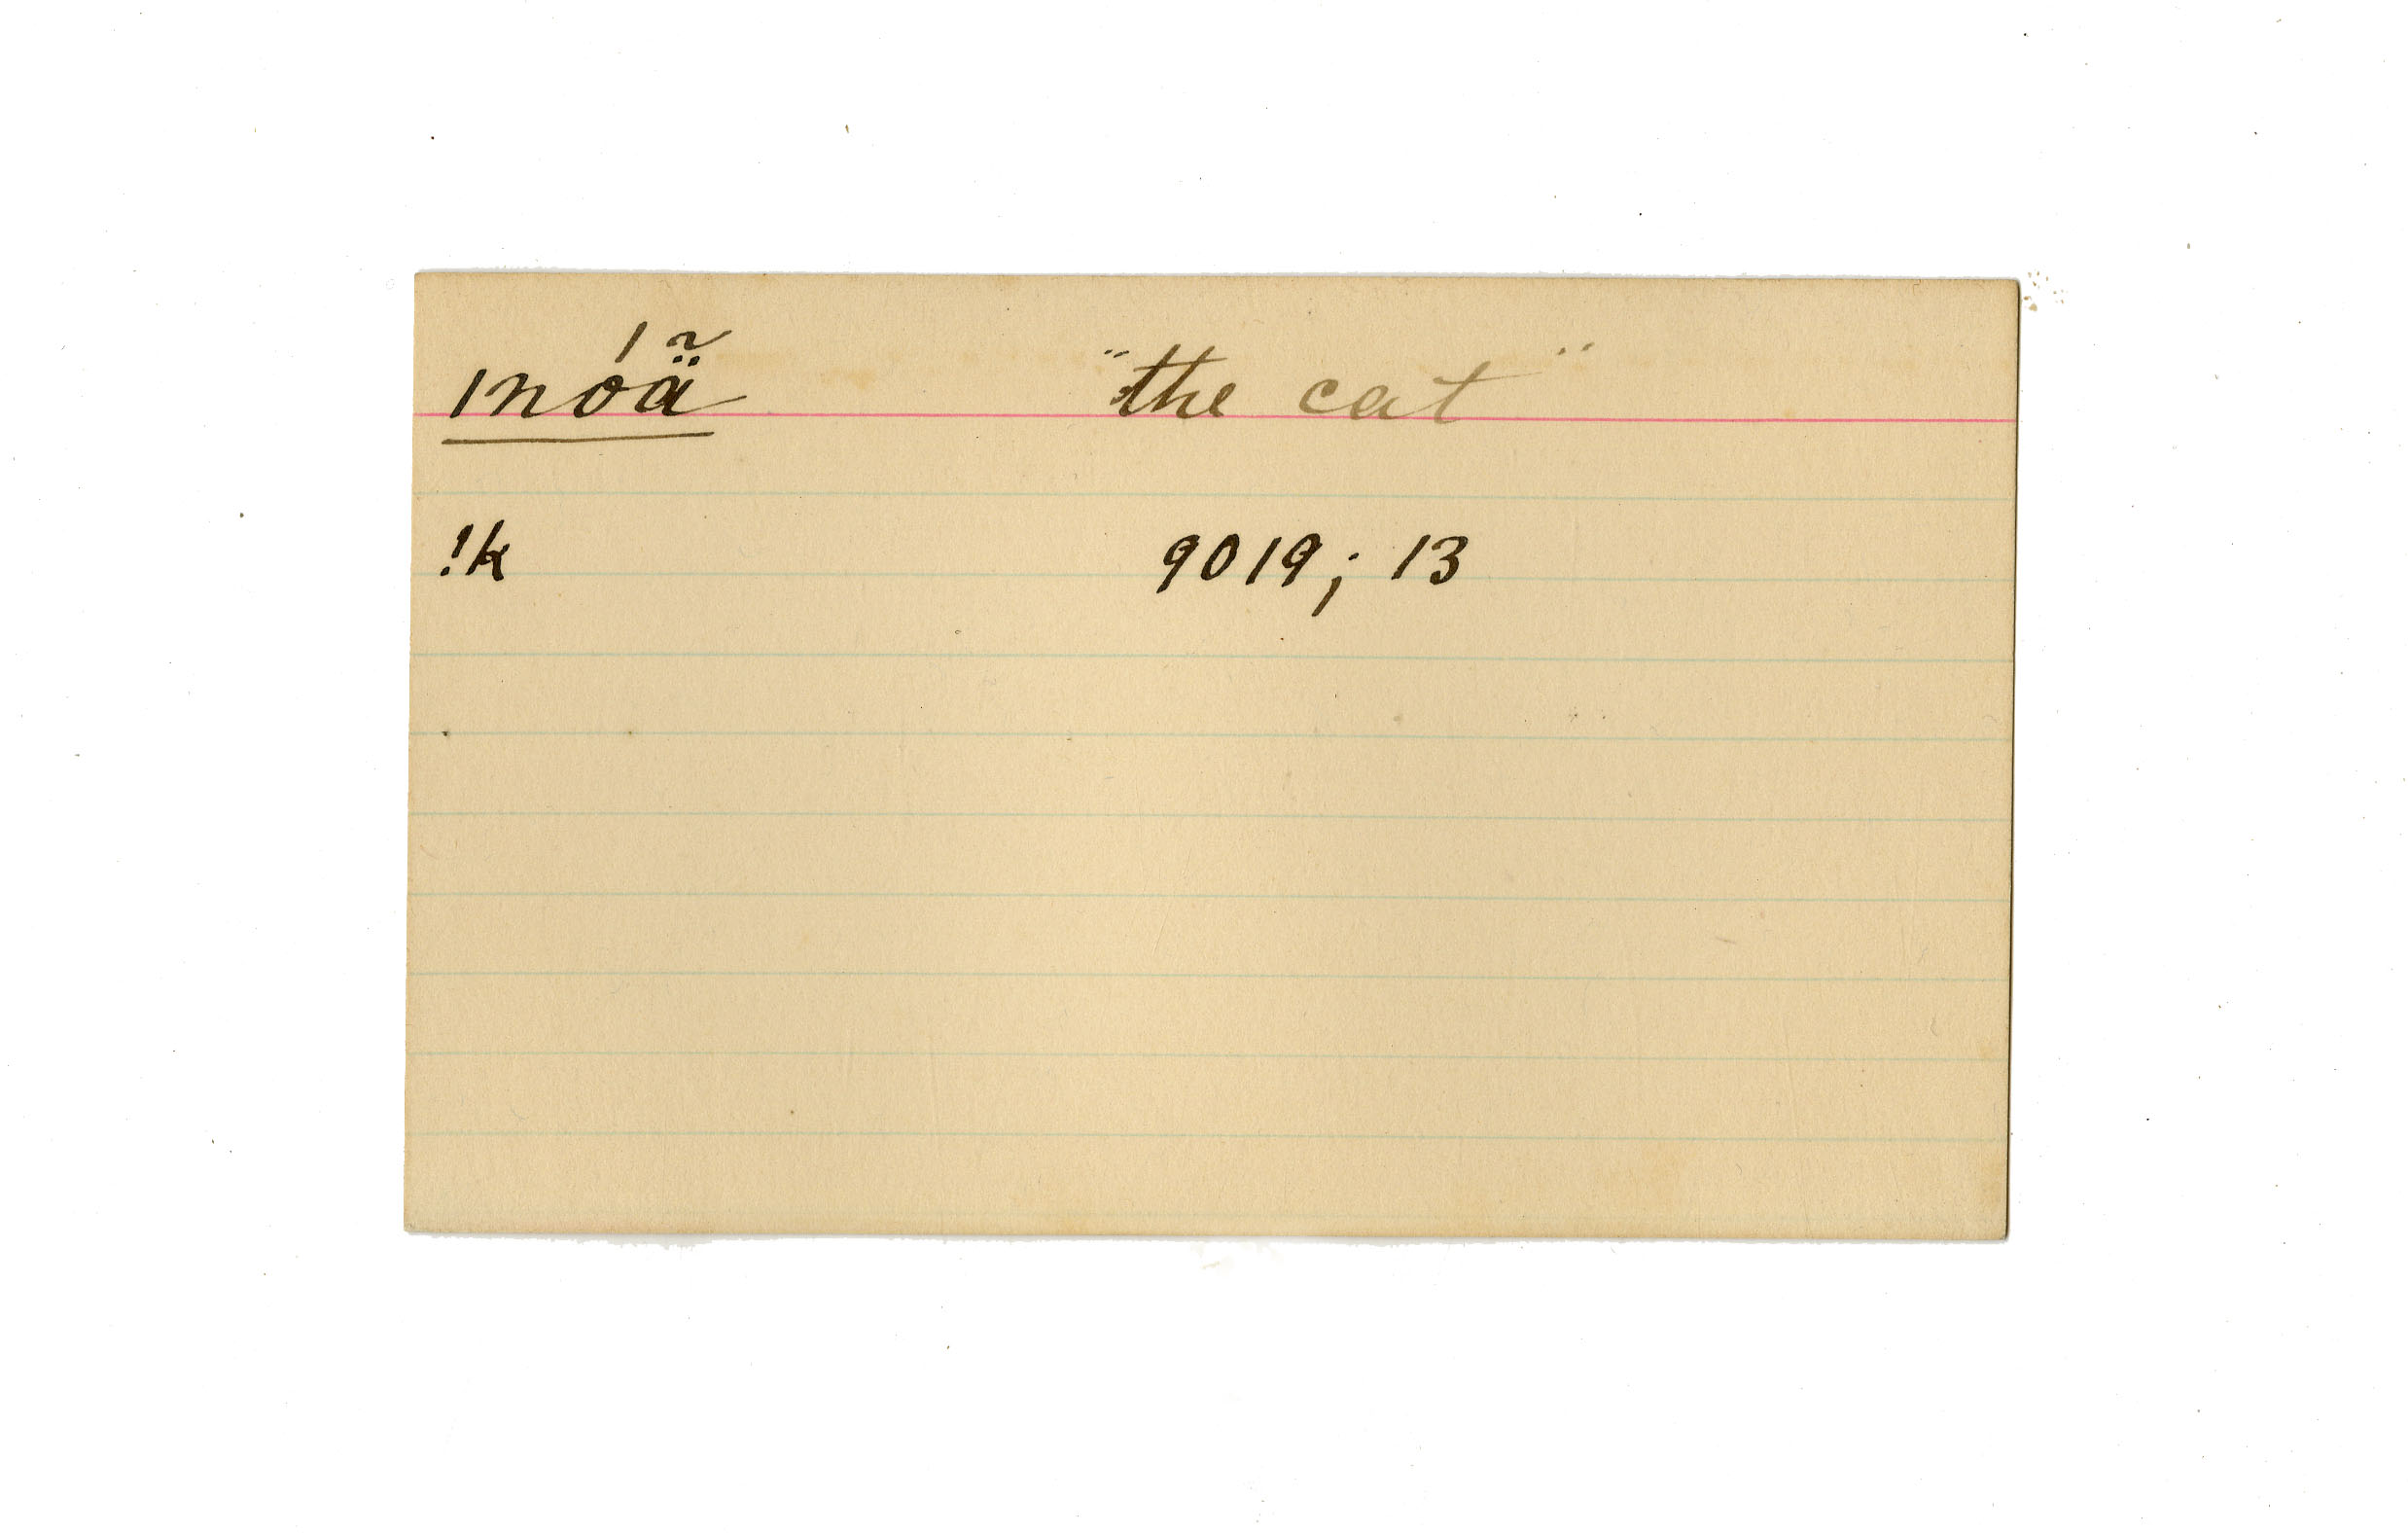 ǀnóä̃ "the cat"
!k 9019; 13